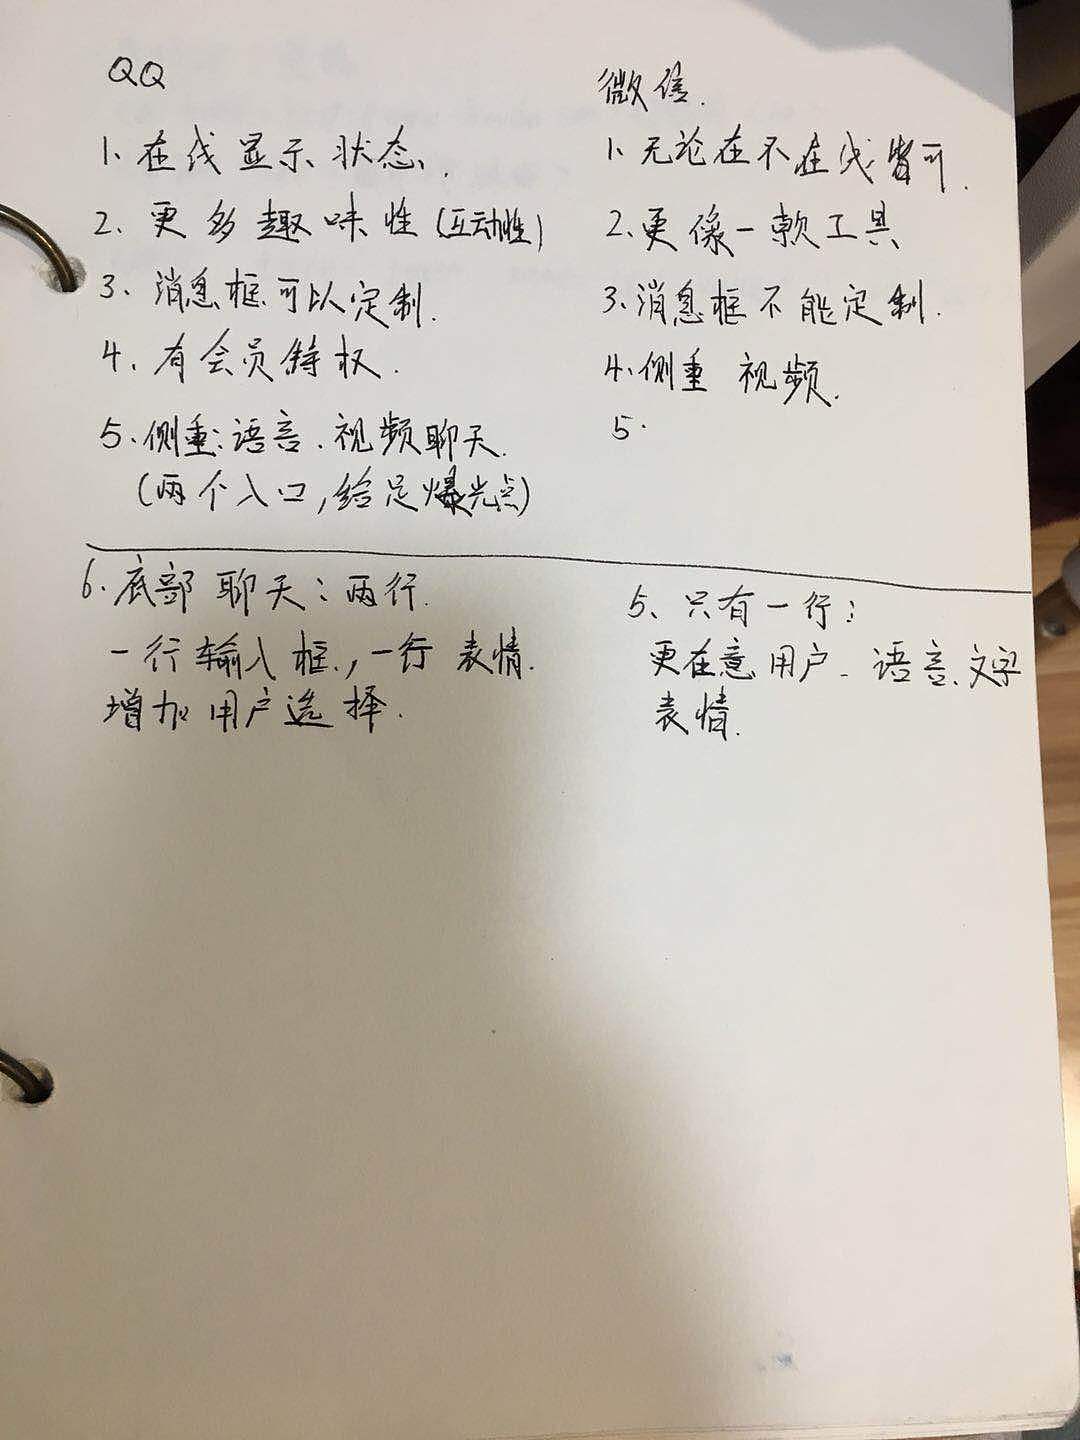 QQ
1、在线显示状态、
2、更多趣味性(互动性)
3、消息框可以定制.
4、有会员特权.
5、侧重:语言.视频聊天.
(两个入口,给足爆光点)
6.底部聊天:两行.
一行输入框,一行表情.
增加用户选择.
微信.
1、无论在不在线皆可.
2、更像一款工具
3、消息框不能定制.
4、侧重 视频.
5.
5、只有一行:
更在意用户-语言、文字
表情.